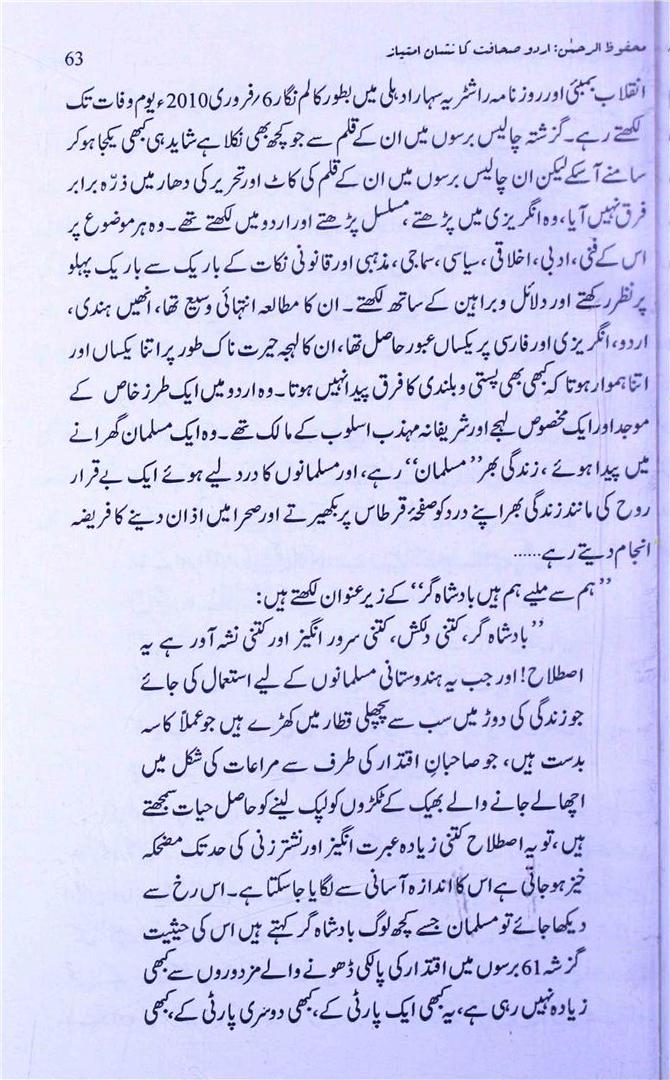 محفوظ الرحمٰن: اردو صحافت کا نشان امتیاز
63
انقلاب بمبئی اور روزنامہ راشٹریہ سہارا دہلی میں بطور کالم نگار 6/فروری 2010ء یوم وفات تک
لکھتے رہے۔ گزشتہ چالیس برسوں میں ان کے قلم سے جو کچھ بھی نکلا ہے شاید ہی کبھی یکجا ہوکر
سامنے آسکے لیکن ان چالیس برسوں میں ان کے قلم کی کاٹ اور تحریر کی دھار میں ذرّہ برابر
فرق نہیں آیا، وہ انگریزی میں پڑھتے، مسلسل پڑھتے اور اردو میں لکھتے تھے۔ وہ ہر موضوع پر
اس کے فنی، ادبی، اخلاقی، سیاسی، سماجی، مذہبی اور قانونی نکات کے باریک سے باریک پہلو
پر نظر رکھتے اور دلائل و براہین کے ساتھ لکھتے۔ ان کا مطالعہ انتہائی وسیع تھا، انھیں ہندی،
اردو، انگریزی اور فارسی پر یکساں عبور حاصل تھا، ان کا لہجہ حیرت ناک طور پر اتنا یکساں اور
اتنا ہموار ہوتا کہ کبھی بھی پستی و بلندی کا فرق پیدا نہیں ہوتا۔ وہ اردو میں ایک طرز خاص کے
موجد اور ایک مخصوص لہجے اور شریفانہ مہذب اسلوب کے مالک تھے۔ وہ ایک مسلمان گھرانے
میں پیدا ہوئے، زندگی بھر ’’مسلمان‘‘ رہے، اور مسلمانوں کا درد لیے ہوئے ایک بے قرار
روح کی مانند زندگی بھر اپنے درد کو صفحۂ قرطاس پر بکھیرتے اور صحرا میں اذان دینے کا فریضہ
انجام دیتے رہے......
’’ہم سے ملیے ہم ہیں بادشاہ گر‘‘ کے زیر عنوان لکھتے ہیں:
’’بادشاہ گر، کتنی دلکش، کتنی سرور انگیز اور کتنی نشہ آور ہے یہ
اصطلاح! اور جب یہ ہندوستانی مسلمانوں کے لیے استعمال کی جائے
جو زندگی کی دوڑ میں سب سے پچھلی قطار میں کھڑے ہیں جو عملاً کاسہ
بدست ہیں، جو صاحبانِ اقتدار کی طرف سے مراعات کی شکل میں
اچھالے جانے والے بھیک کے ٹکڑوں کو لپک لینے کو حاصل حیات سمجھتے
ہیں، تو یہ اصطلاح کتنی زیادہ عبرت انگیز اور نشتر زنی کی حد تک مضحکہ
خیز ہوجاتی ہے اس کا اندازہ آسانی سے لگایا جاسکتا ہے۔ اس رخ سے
دیکھا جائے تو مسلمان جسے کچھ لوگ بادشاہ گر کہتے ہیں اس کی حیثیت
گزشہ 61 برسوں میں اقتدار کی پالکی ڈھونے والے مزدوروں سے کبھی
زیادہ نہیں رہی ہے، یہ کبھی ایک پارٹی کے، کبھی دوسری پارٹی کے، کبھی